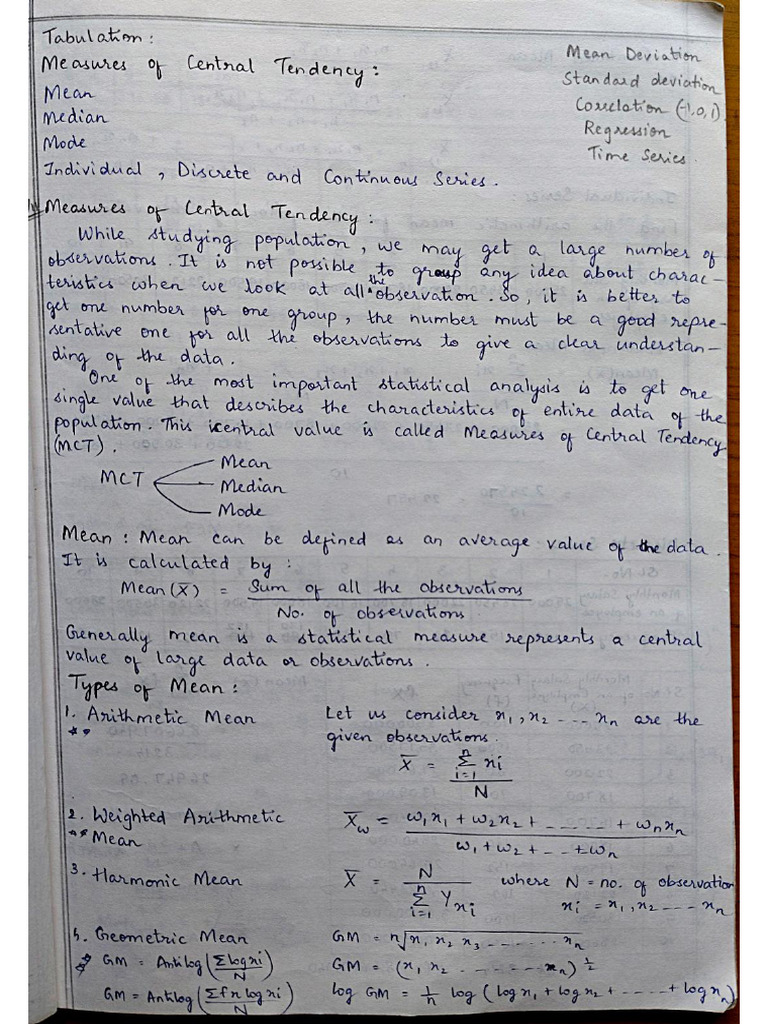 Tabulation :
Measures of Central Tendency :
Mean
Median
Mode
Individual , Discrete and Continuous Series .
Mean Deviation
Standard deviation
Corelation (-1,0,1).
Regression
Time Series.
Measures of Central Tendency :
While studying population , we may get a large number of
observations . It is not possible to group any idea about charac-
teristics when we look at all the observation . So , it is better to
get one number for one group , the number must be a good repre-
sentative one for all the observations to give a clear understan-
ding of the data .
One of the most important statistical analysis is to get one
single value that describes the characteristics of entire data of the
population . This central value is called Measures of Central Tendency
(MCT) .
Mean
MCT Median
Mode
Mean : Mean can be defined as an average value of the data .
It is calculated by :
Mean (X̅) = Sum of all the observations
No. of observations
Generally mean is a statistical measure represents a central
value of large data or observations .
Types of Mean :
1. Arithmetic Mean Let us consider x₁, x₂ ---- xₙ are the
given observations .
X̅ = Σⁿᵢ₌₁ xi / N
2. Weighted Arithmetic Mean X̅w = w₁x₁ + w₂x₂ + ------ + wₙxₙ / w₁ + w₂ + -- + wₙ
3. Harmonic Mean X̅ = N / Σⁿᵢ₌₁ 1/xi where N = no. of observation
xi = x₁, x₂ ---- xₙ
4. Geometric Mean GM = n√x₁ x₂ x₃ ........ xₙ
GM = Antilog (Σlog xi / N) GM = (x₁ x₂ -------- xₙ) ½
GM = Antilog (Σfx log xi / N) log GM = 1/n log (log x₁ + log x₂ + ----- + log xₙ)